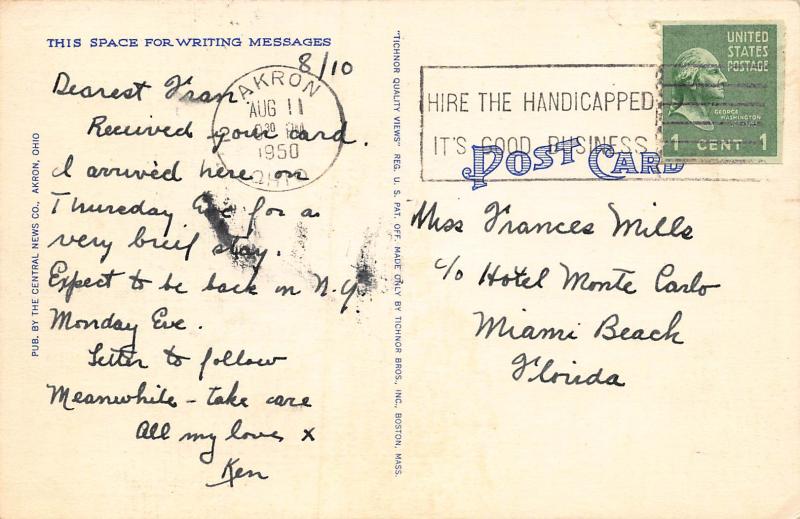 THIS SPACE FOR WRITING MESSAGES
8/10
Dearest Fran
Received your card.
I arrived here on
Thursday Eve for a
very brief stay.
Expect to be back in N.Y.
Monday Eve.
Letter to follow
Meanwhile - take care
All my love x
Ken
PUB. BY THE CENTRAL NEWS CO., AKRON, OHIO
"TICHNOR QUALITY VIEWS" REG. U. S. PAT. OFF. MADE ONLY BY TICHNOR BROS., INC., BOSTON, MASS.
AKRON
AUG 11
1950
OHIO
HIRE THE HANDICAPPED
IT'S GOOD BUSINESS
UNITED
STATES
POSTAGE
GEORGE
WASHINGTON
1 CENT 1
POST CARD
Miss Frances Mills
c/o Hotel Monte Carlo
Miami Beach
Florida